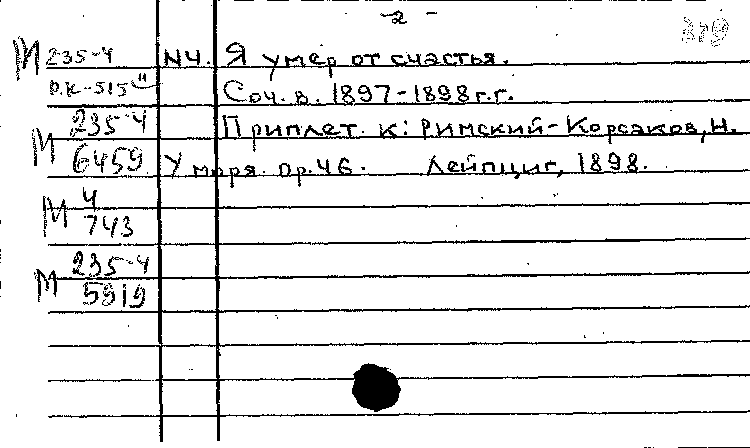 -2-
М 235-4 N4. Я умер от счастья.
Соч. в. 1897-1898г.г.
М 235-4 Приплет. к: Римский-Корсаков, Н.
6459 У моря. Op.46. Лейпциг, 1898.
М 4
743
М 235-4
5919